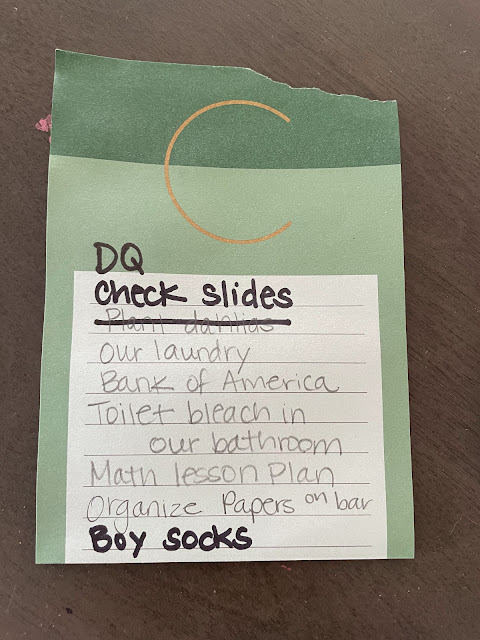 C
DQ
Check slides
Plant dahlias
Our laundry
Bank of America
Toilet bleach in
our bathroom
Math lesson Plan
Organize Papers on bar
Boy socks